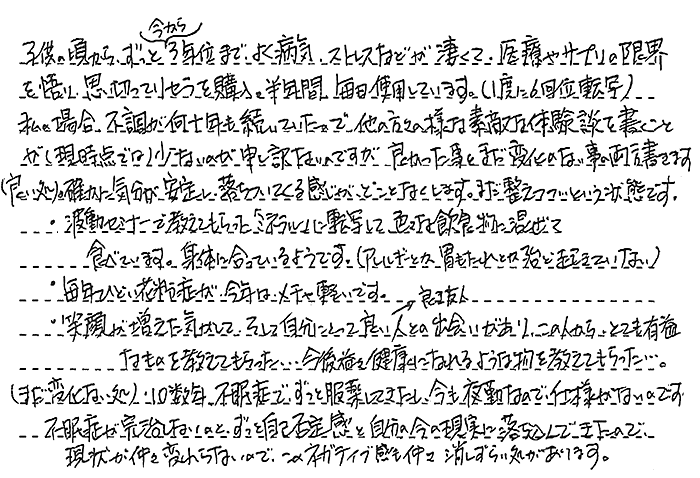 今から
子供の頃から、ずっと3年位まで、よく病気、ストレスなどが凄くて、医療やサプリの限界
を悟り、思い切ってリセラを購入。半年間、毎日使用しています。(1度に6回位転写)
私の場合、不調が何十年も続いていたので、他の方々の様な素敵な体験談を書くこと
が(現時点では)少ないのが申し訳ないのですが、良かった事とまだ変化のない事を両方書きます
(良い処)確かに気分が安定し、落ちついてくる感じが、どことなくします。まだ整えつつという状態です。
・波動セミナーで教えてもらったミネラルに転写して、色々な飲食物に混ぜて
食べています。身体に合っているようです。(アレルギーとか、胃もたれとか殆ど起きていない)
・毎年ひどい花粉症が、今年は、メチャ軽いです。
良き友人
・笑顔が増えた気がして、そして自分にとって良い人との出会いがあり、この人から、とても有益
なものを教えてもらった…今後益々健康になれるような物を教えてもらった…。
(まだ変化ない処)・10数年、不眠症で、ずっと服薬してきたし、今も夜勤なので仕様がないのです
不眠症が完治しないのと、ずっと自己否定感と自分の今の現実に落ち込んできたので、
現状が仲々変わらないので、このネガティブ感も仲々消しずらい処があります。